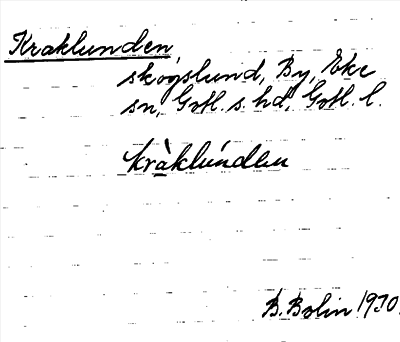 Kraklunden,
skogslund, By, Eke
sn, Gotl. s. hd, Gotl. l.
kràklúnden
B. Bolin 1930.